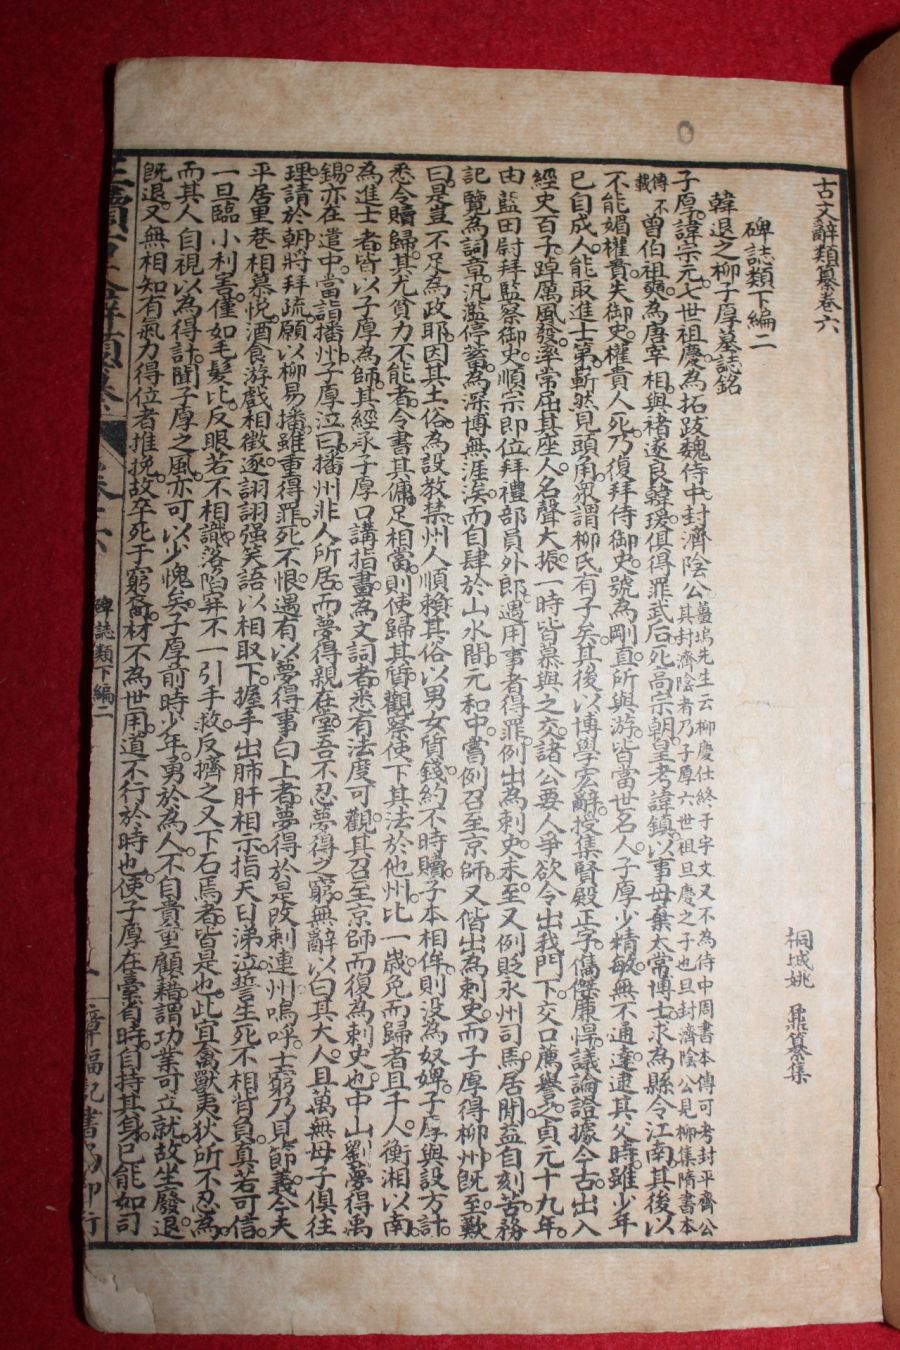 古文辭類纂卷六
桐城姚 鼐纂集
碑誌類下編二
韓退之柳子厚墓誌銘
子厚諱宗元七世祖慶為拓跋魏侍中封濟陰公薑塢先生云柳慶仕終于宇文又不為侍中周書本傳可考封平齊公其封濟陰者乃子厚六世祖旦慶之子也旦封濟陰公見柳集隋書本
傳不載曾伯祖奭為唐宰相與褚遂良韓瑗俱得罪武后死高宗朝皇考諱鎮以事母棄太常博士求為縣令江南其後以
不能媚權貴失御史權貴人死乃復拜侍御史號為剛直所與游皆當世名人子厚少精敏無不通達逮其父時雖少年
已自成人能取進士第嶄然見頭角衆謂柳氏有子矣其後以博學宏辭授集賢殿正字儁傑廉悍議論證據今古出入
經史百子踔厲風發率常屈其座人名聲大振一時皆慕與之交諸公要人爭欲令出我門下交口薦譽之貞元十九年
由藍田尉拜監察御史順宗即位拜禮部員外郎遇用事者得罪例出為刺史未至又例貶永州司馬居閒益自刻苦務
記覽為詞章汎濫停蓄為深博無涯涘而自肆於山水間元和中嘗例召至京師又偕出為刺史而子厚得柳州既至歎
曰是豈不足為政耶因其土俗為設教禁州人順賴其俗以男女質錢約不時贖子本相侔則沒為奴婢子厚與設方計
悉令贖歸其尤貧力不能者令書其傭足相當則使歸其質觀察使下其法於他州比一歲免而歸者且千人衡湘以南
為進士者皆以子厚為師其經承子厚口講指畫為文詞者悉有法度可觀其召至京師而復為刺史也中山劉夢得禹
錫亦在遣中當詣播州子厚泣曰播州非人所居而夢得親在堂吾不忍夢得之窮無辭以白其大人且萬無母子俱往
理請於朝將拜疏願以柳易播雖重得罪死不恨遇有以夢得事白上者夢得於是改刺連州嗚呼士窮乃見節義今夫
平居里巷相慕悅酒食游戲相徵逐詡詡强笑語以相取下握手出肺肝相示指天日涕泣誓生死不相背負真若可信
一旦臨小利害僅如毛髮比反眼若不相識落陷穽不一引手救反擠之又下石焉者皆是也此宜禽獸夷狄所不忍為
而其人自視以為得計聞子厚之風亦可以少愧矣子厚前時少年勇於為人不自貴重顧藉謂功業可立就故坐廢退
既退又無相知有氣力得位者推挽故卒死于窮裔材不為世用道不行於時也使子厚在臺省時自持其身已能如司
碑誌類下編二